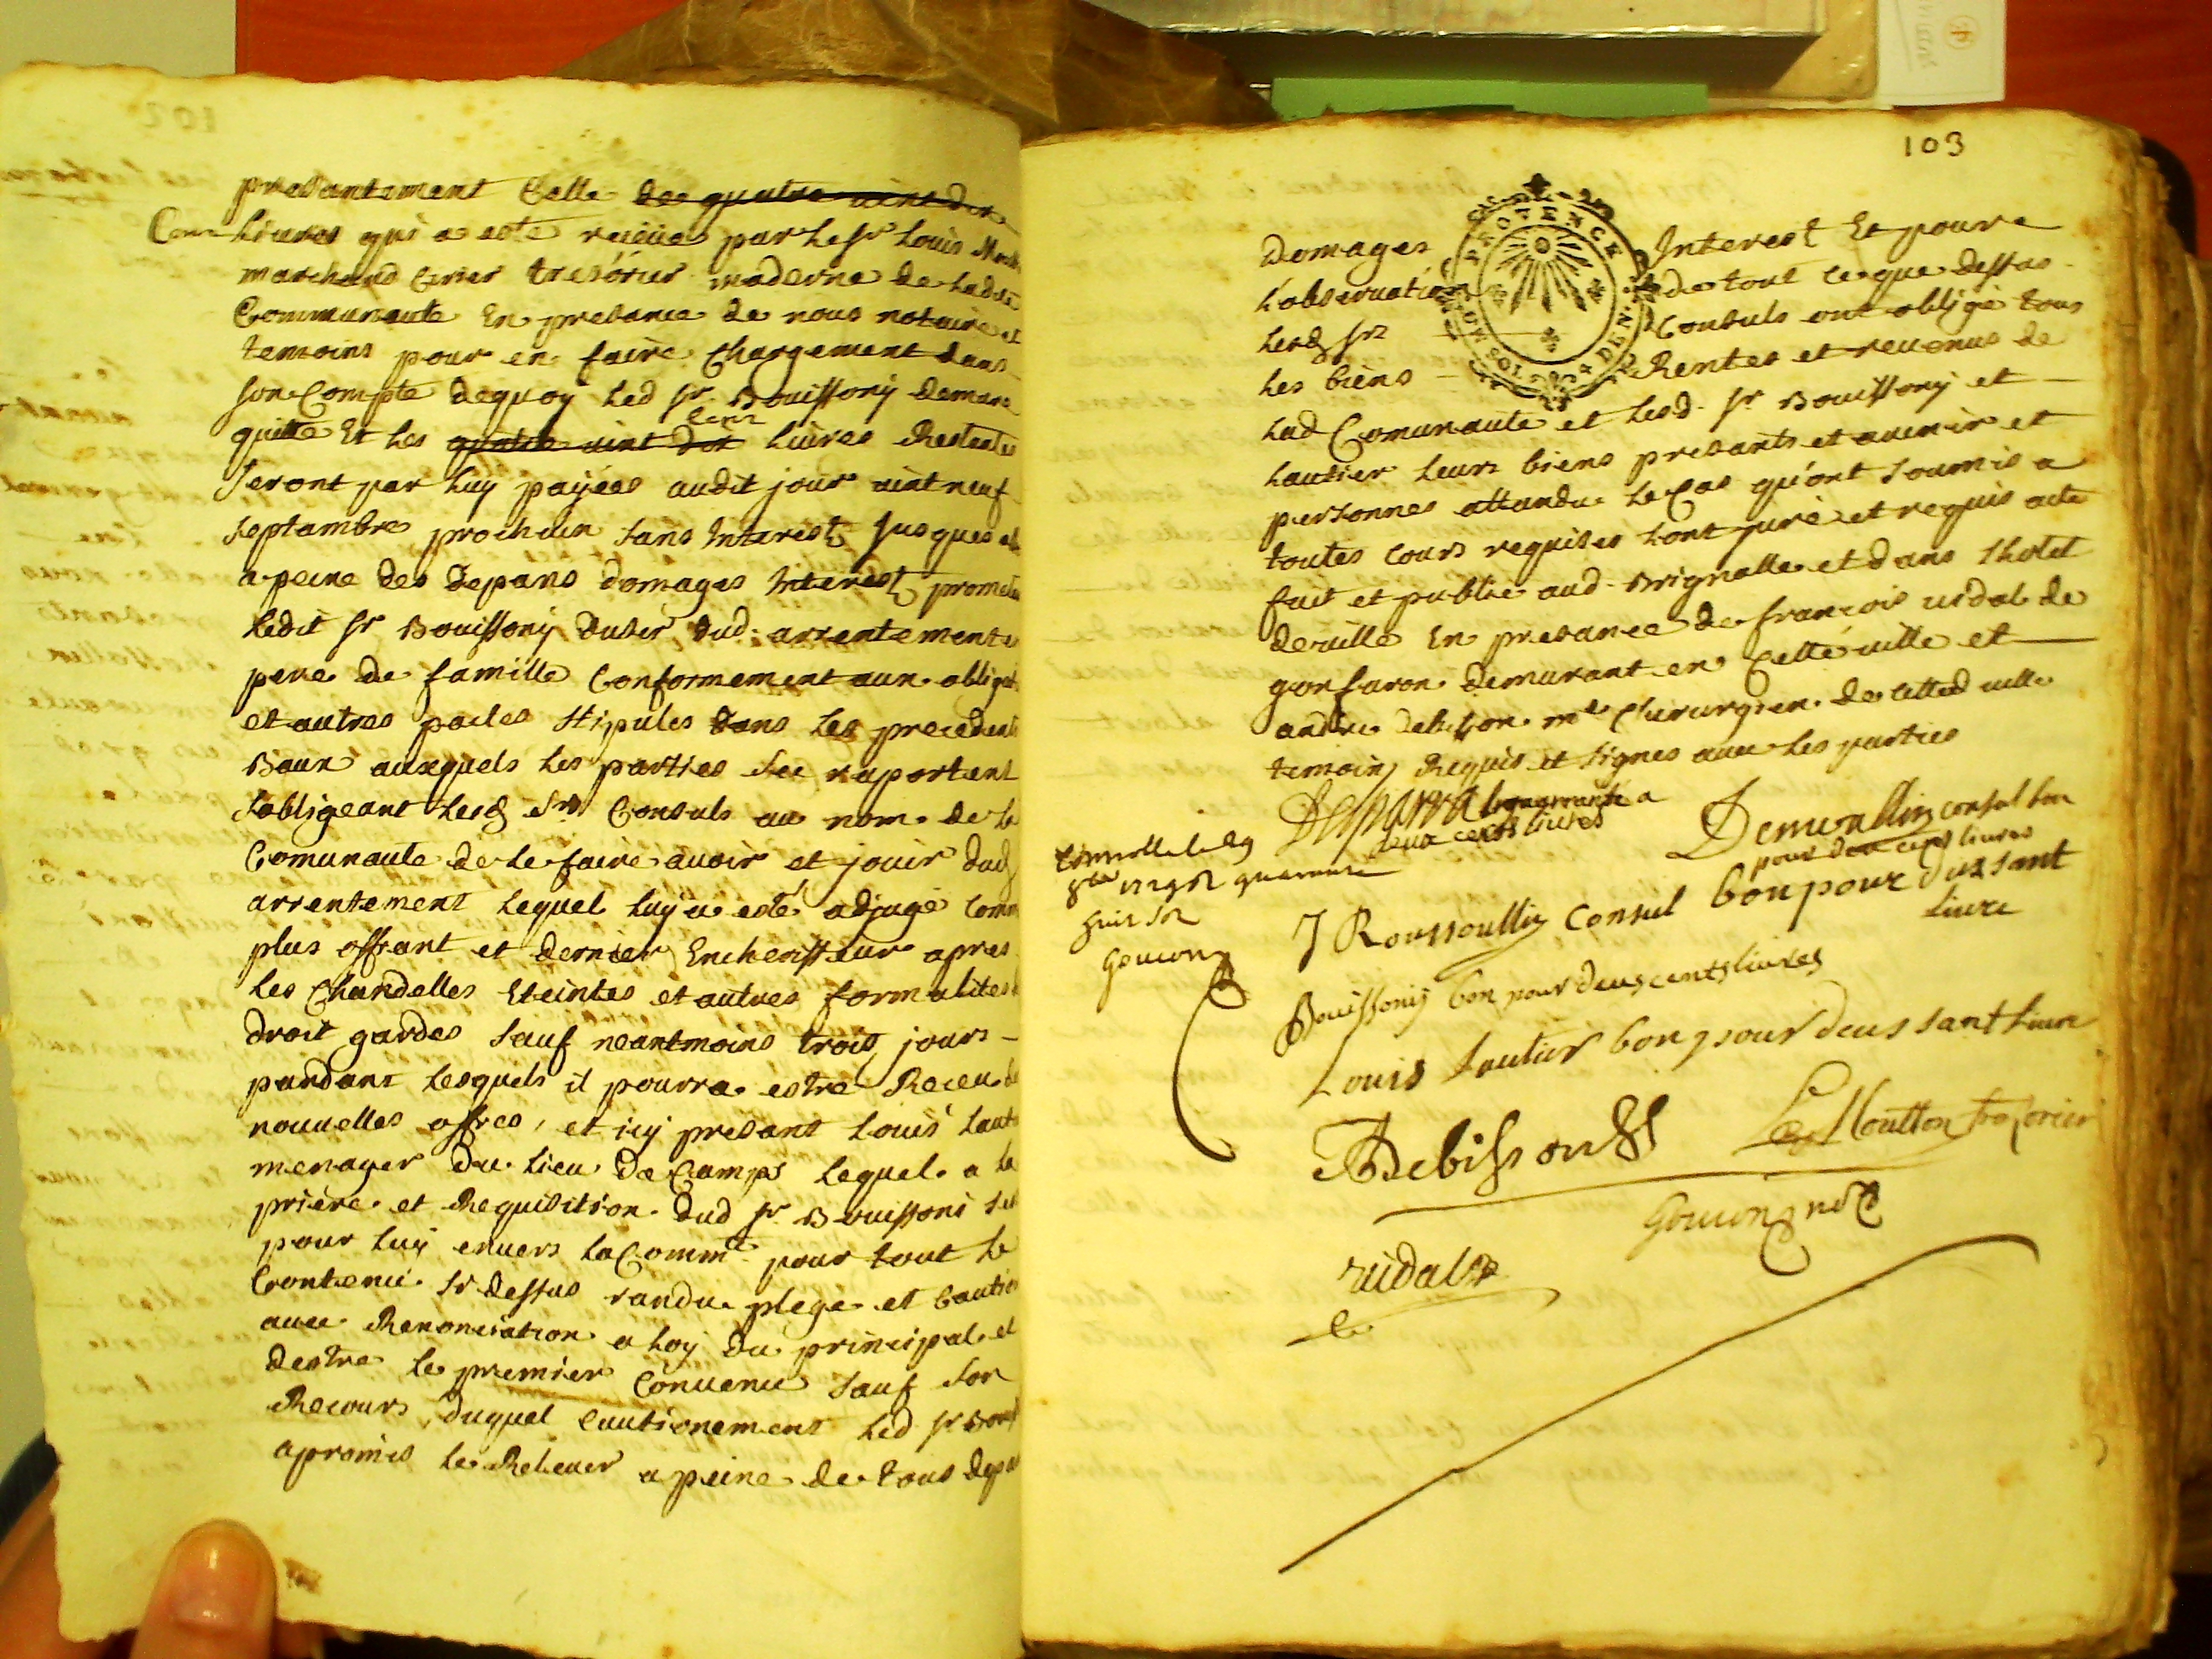 presantement Celle des quatre vint dix
Cent Livres qui a esté reçeüe par le sr Louis
marchand Cirier tresórier moderne de Ladte
Communauté En presance de nous notaire et
temoins pour en faire Chargement dans
son Compte dequoy Led sr Bouissony demure
quitte Et les quatre vint dix Cent Livres Restantes
seront par Luy payées audit jour vint neuf
septambre prochain sans Interest jusques
a peine des depans domages Interest promet
Ledit sr Bouissony duser dud arrentement
pere de famille Conformement aux obliga
et autres pactes stipules dans les precedents
Baux ausquels les parties see raportent
sobligeant Lesd srs Consuls au nom de la
Comunauté de le faire avoir et jouir dud
arrentement Lequel Luy a esté adjugé Comm
plus offrant et dernier Encherisseur apres
les Chandelles Eteintes et autres formalites
droit gardés sauf neantmoins trois jours
pandant Lesquels il pourra estre Receu de
nouvelles offres, et icy presant Louis Laut
menager du Lieu de Camps Lequel a la
priere et Requisition dud sr Bouissoni sest
pour luy envers la Commté pour tout le
Contenu sy dessus randu plege et Cautio
avec Renonciation a loy du principal et
destre le premier Convenu sauf son
Recours duquel Cautionement Led sr Bouiss
a promis le Relever a peine de tous depa
103
PROVENCE
Domages Interest Et pour
L'observation de tout ce que dessus
Lesd srs Consuls ont obligé tous
les biens Rentes et revenus de
Lad Comunauté et Lesd sr Bouissony et
Lautier leurs biens presants et avenir et
personnes attandu le Cas qu'ont soumis a
toutes Cours requises Lont juré et requis acte
fait et publié aud Brignolle et dans Lhotel
deville En presance de françois vidal de
gonfaron demurant en Cette ville et
andré debisson me Chirurgien de cetted ville
temoins Requis et signes avec les parties
a
deux cents livres
consul bon
pour deux cens livres
quarante
huit sols
Goujon
J Roussoullin Consul bon pour dus sant
livre
Bouissony bon pour deux cents livres
Louis Lautier bon pour deus sant livre
ADebisson
Moutton tresorier
Goujon nore
vidal